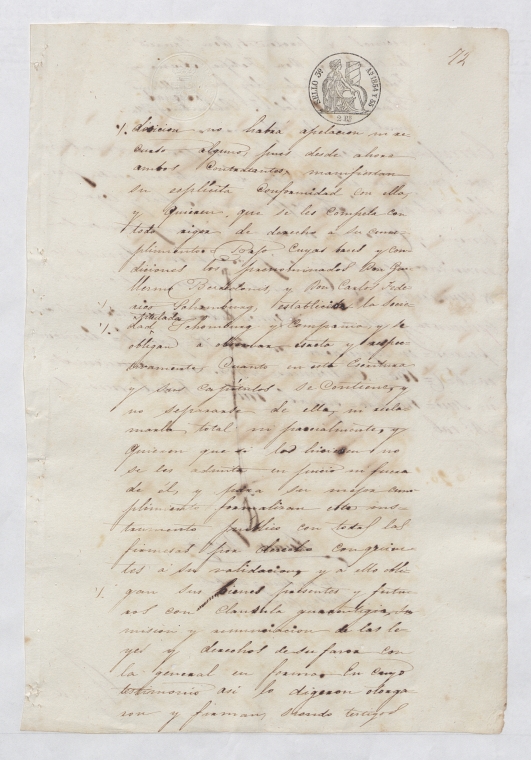 72
SELLO 3º AS. 1854 Y 55
2 Rs
dision no habia apelacion ni re
curso alguno, pues desde ahora
ambos Contratantes manifiestan
su esplicita conformidad con ella,
y quieren que se les compela con
todo rigor de derecho a su cum
plimiento. Bajo Cuyas bases y con
diciones los prenominados Don
llermo y Don Carlos Fede
rico Schomburg, establecida la Socie
titulada
dad Schomburg y Compañia, y se
obligan á observar exacta y respec
tivamente, Cuanto en esta Escritura
y sus Capitulos se contiene, y
no separarse de ella, ni en la
manera total ni parcialmente, y
quieren que si los hiciesen no
se les admita en juicio ni fuera
de él, y para su mejor cum
plimiento formalizan este ins
trumento publico con todas las
firmezas por derecho conducen
tes á su validacion, y á ello obli
gan sus bienes presentes y futu
ros con Clausula guarentigia, su
mision y renunciacion de las le
yes y derechos de su favor con
la general en forma. En cuyo
testimonio asi lo digeron otorga
ron y firman, siendo testigos